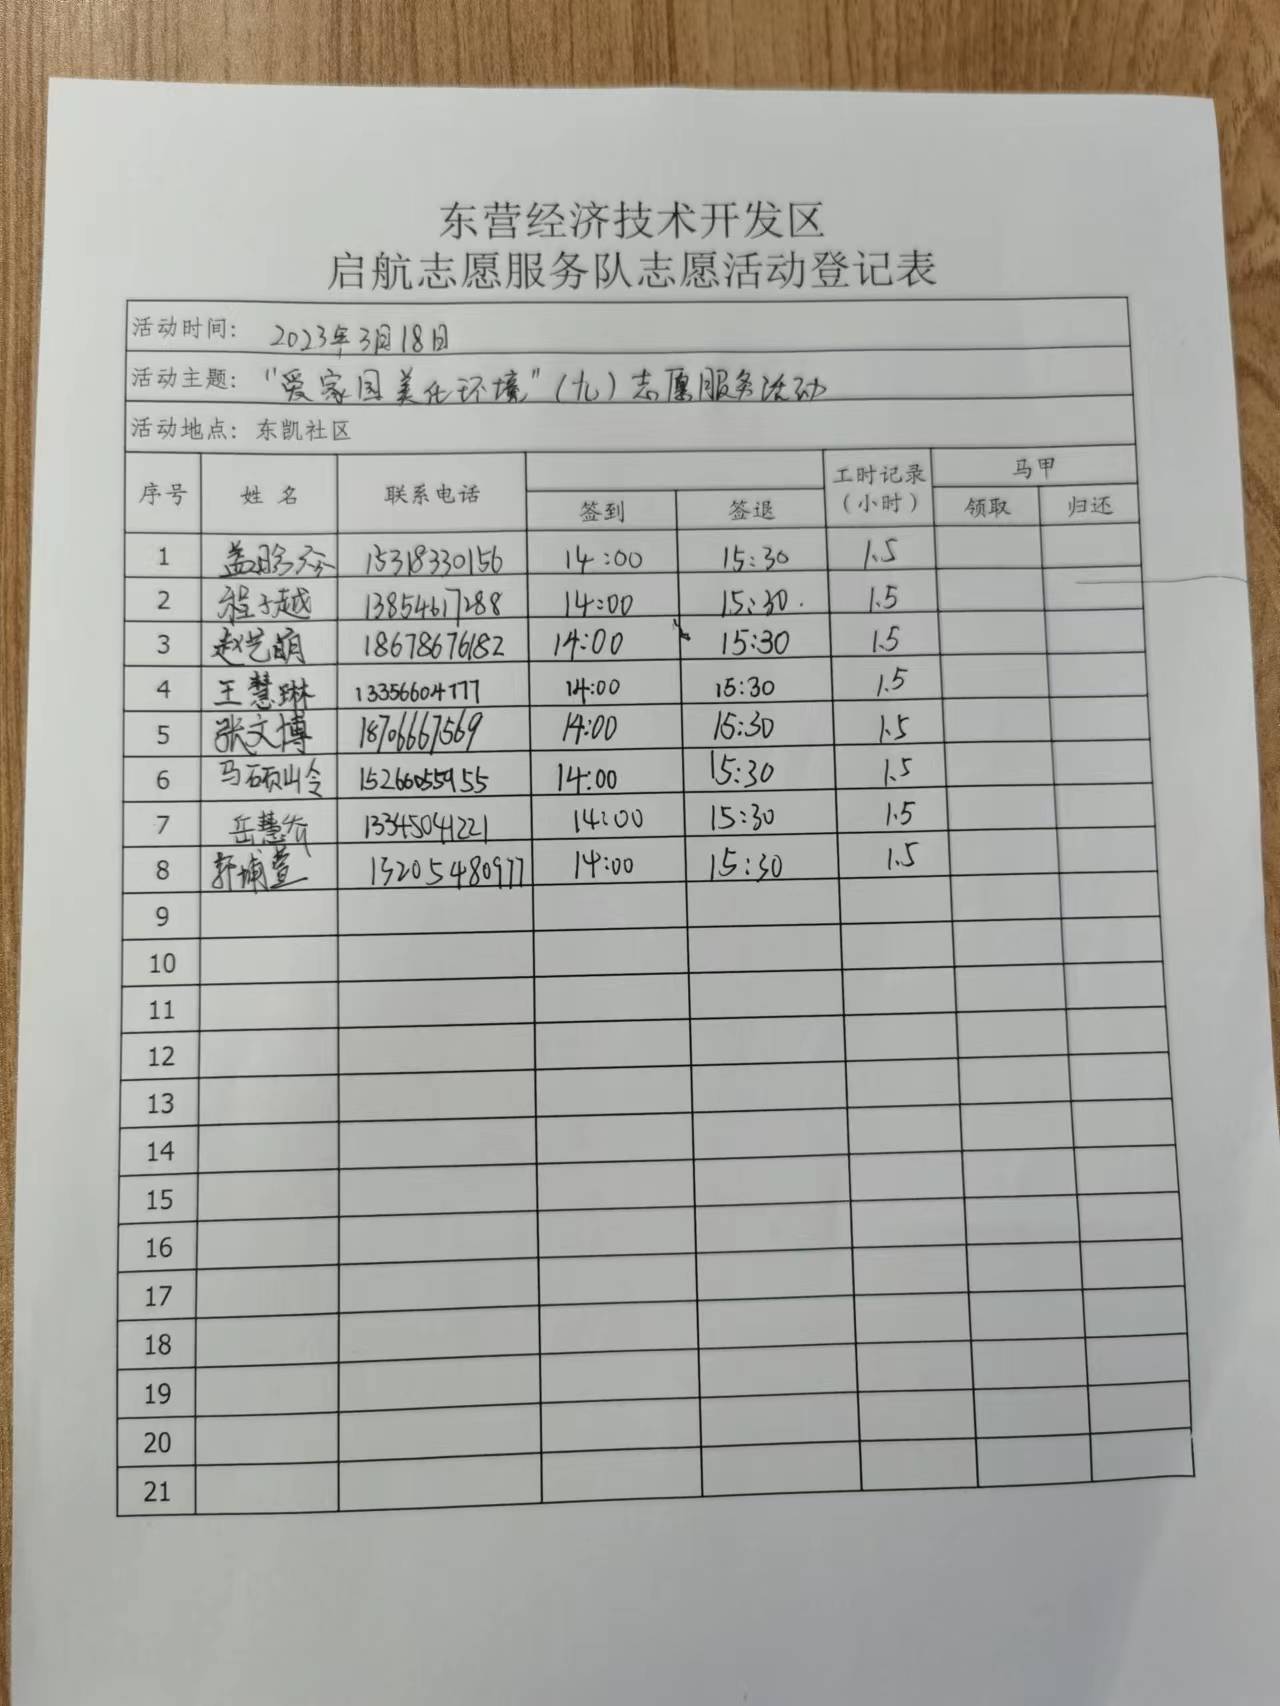 东营经济技术开发区
启航志愿服务队志愿活动登记表
活动时间: 2023年3月18日
活动主题: "爱家园美化环境"(九)志愿服务活动
活动地点: 东凯社区
序号 姓名 联系电话 签到 签退 工时记录(小时) 马甲 领取 归还
1 15318330156 14:00 15:30 1.5
2 程子越 13854617288 14:00 15:30. 1.5
3 赵艺萌 18678676182 14:00 15:30 1.5
4 王慧琳 13356604777 14:00 15:30 1.5
5 张文博 18706667569 14:00 15:30 1.5
6 马硕岭 15266055955 14:00 15:30 1.5
7 岳慧 13345041221 14:00 15:30 1.5
8 15205480977 14:00 15:30 1.5
9
10
11
12
13
14
15
16
17
18
19
20
21